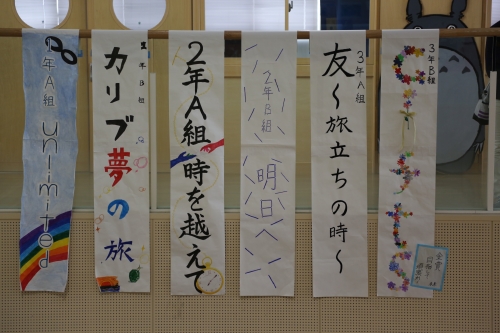 1年A組
unlimited
1年B組
カリブ夢の旅
2年A組 時を越えて
2年B組
明日へ
3年A組
友〜旅立ちの時〜
3年B組